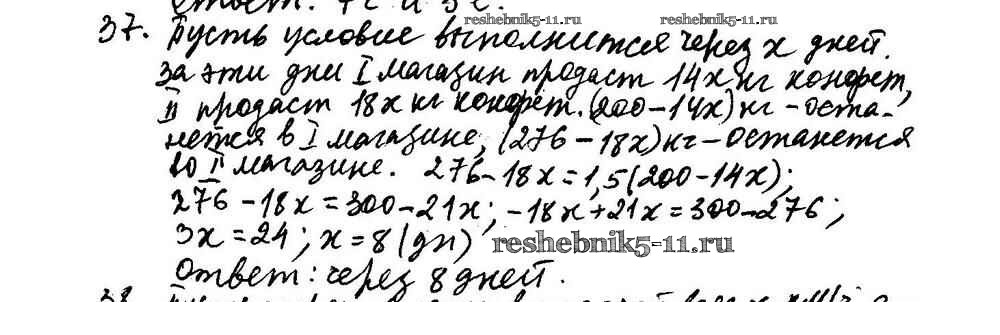 Ответ:
reshebnik5-11.ru reshebnik5-11.ru
37. Пусть условие выполнится через x дней.
За эти дни I магазин продаст 14x кг конфет,
II продаст 18x кг конфет. (200-14x) кг - оста-
нется в I магазине, (276-18x) кг - останется
во II магазине. 276-18x=1,5(200-14x);
276-18x=300-21x; -18x+21x=300-276;
3x=24; x=8 (дн) reshebnik5-11.ru
Ответ: через 8 дней.
38.